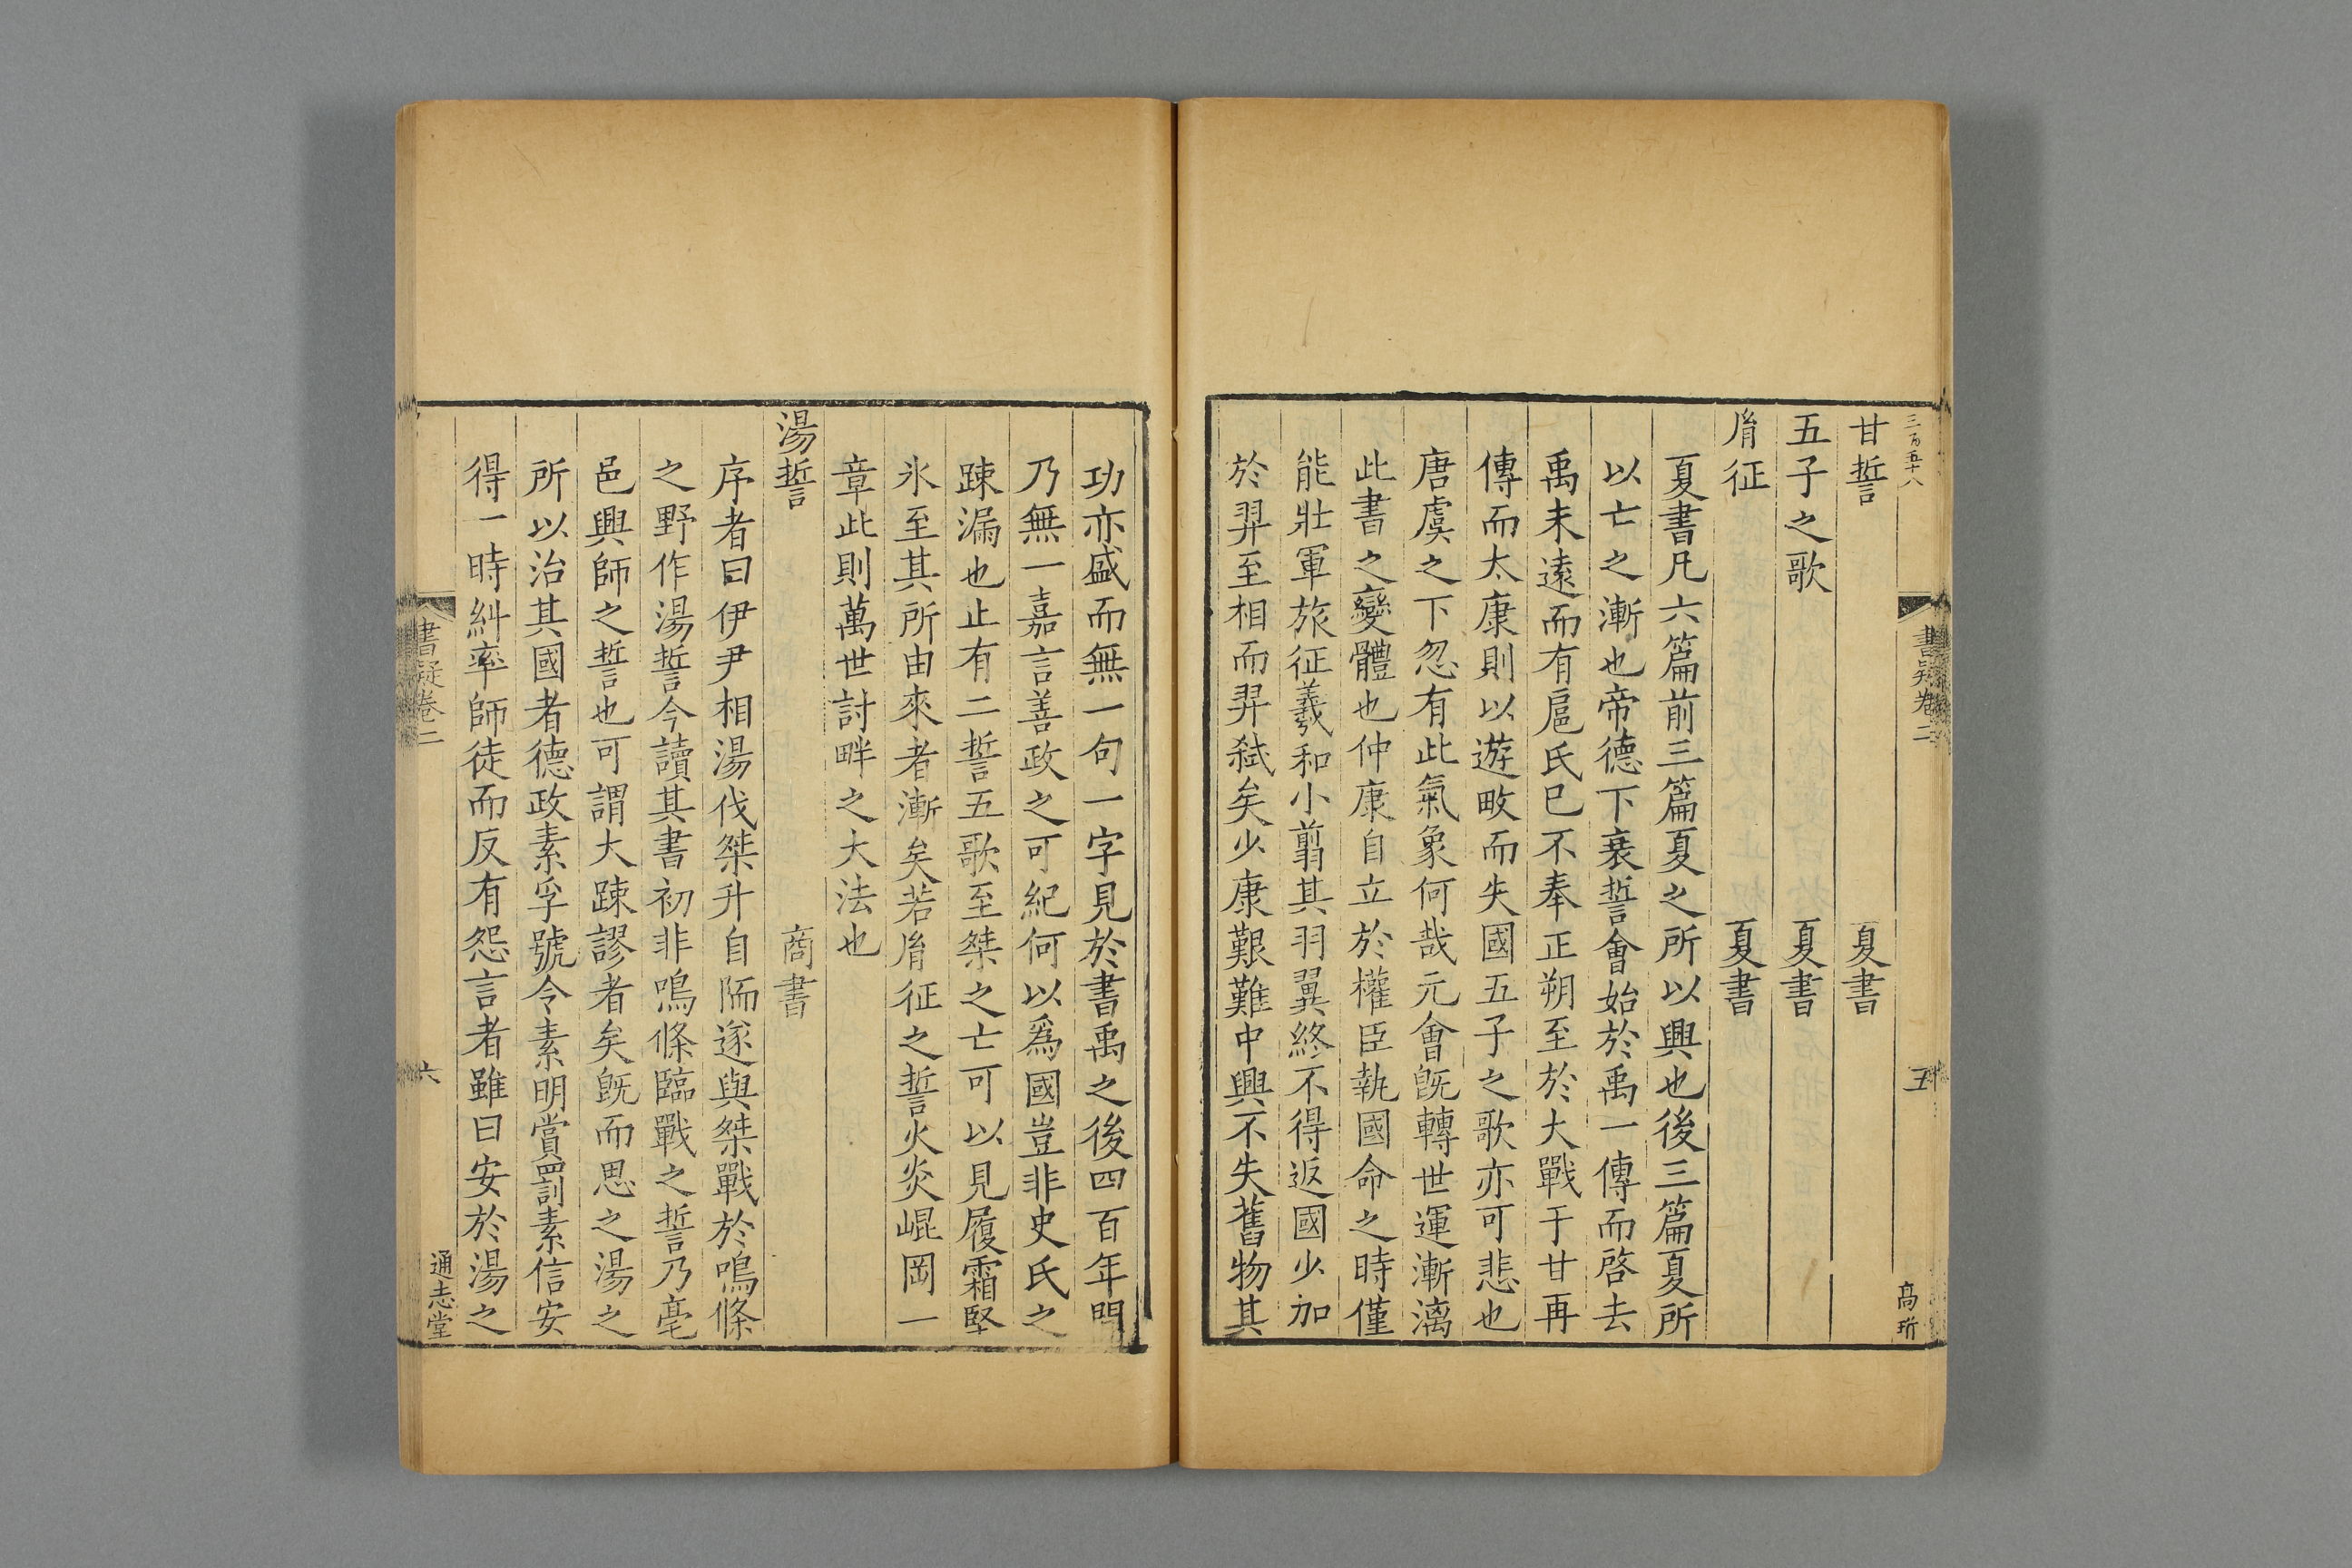 三百五十八
書疑卷二
五
高珩
甘誓 夏書
五子之歌 夏書
胤征 夏書
夏書凡六篇前三篇夏之所以興也後三篇夏所
以亡之漸也帝德下衰誓會始於禹一傳而啓去
禹未遠而有扈氏已不奉正朔至於大戰于甘再
傳而太康則以遊畋而失國五子之歌亦可悲也
唐虞之下忽有此氣象何哉元會旣轉世運漸漓
此書之變體也仲康自立於權臣執國命之時僅
能壯軍旅征羲和小翦其羽翼終不得返國少加
於羿至相而羿弒矣少康艱難中興不失舊物其
功亦盛而無一句一字見於書禹之後四百年間
乃無一嘉言善政之可紀何以爲國豈非史氏之
踈漏也止有二誓五歌至桀之亡可以見履霜堅
氷至其所由來者漸矣若胤征之誓火炎崐岡一
章此則萬世討畔之大法也
湯誓 商書
序者曰伊尹相湯伐桀升自陑遂與桀戰於鳴條
之野作湯誓今讀其書初非鳴條臨戰之誓乃亳
邑興師之誓也可謂大踈謬者矣旣而思之湯之
所以治其國者德政素孚號令素明賞罰素信安
得一時糾率師徒而反有怨言者雖曰安於湯之
書疑卷二
六
通志堂